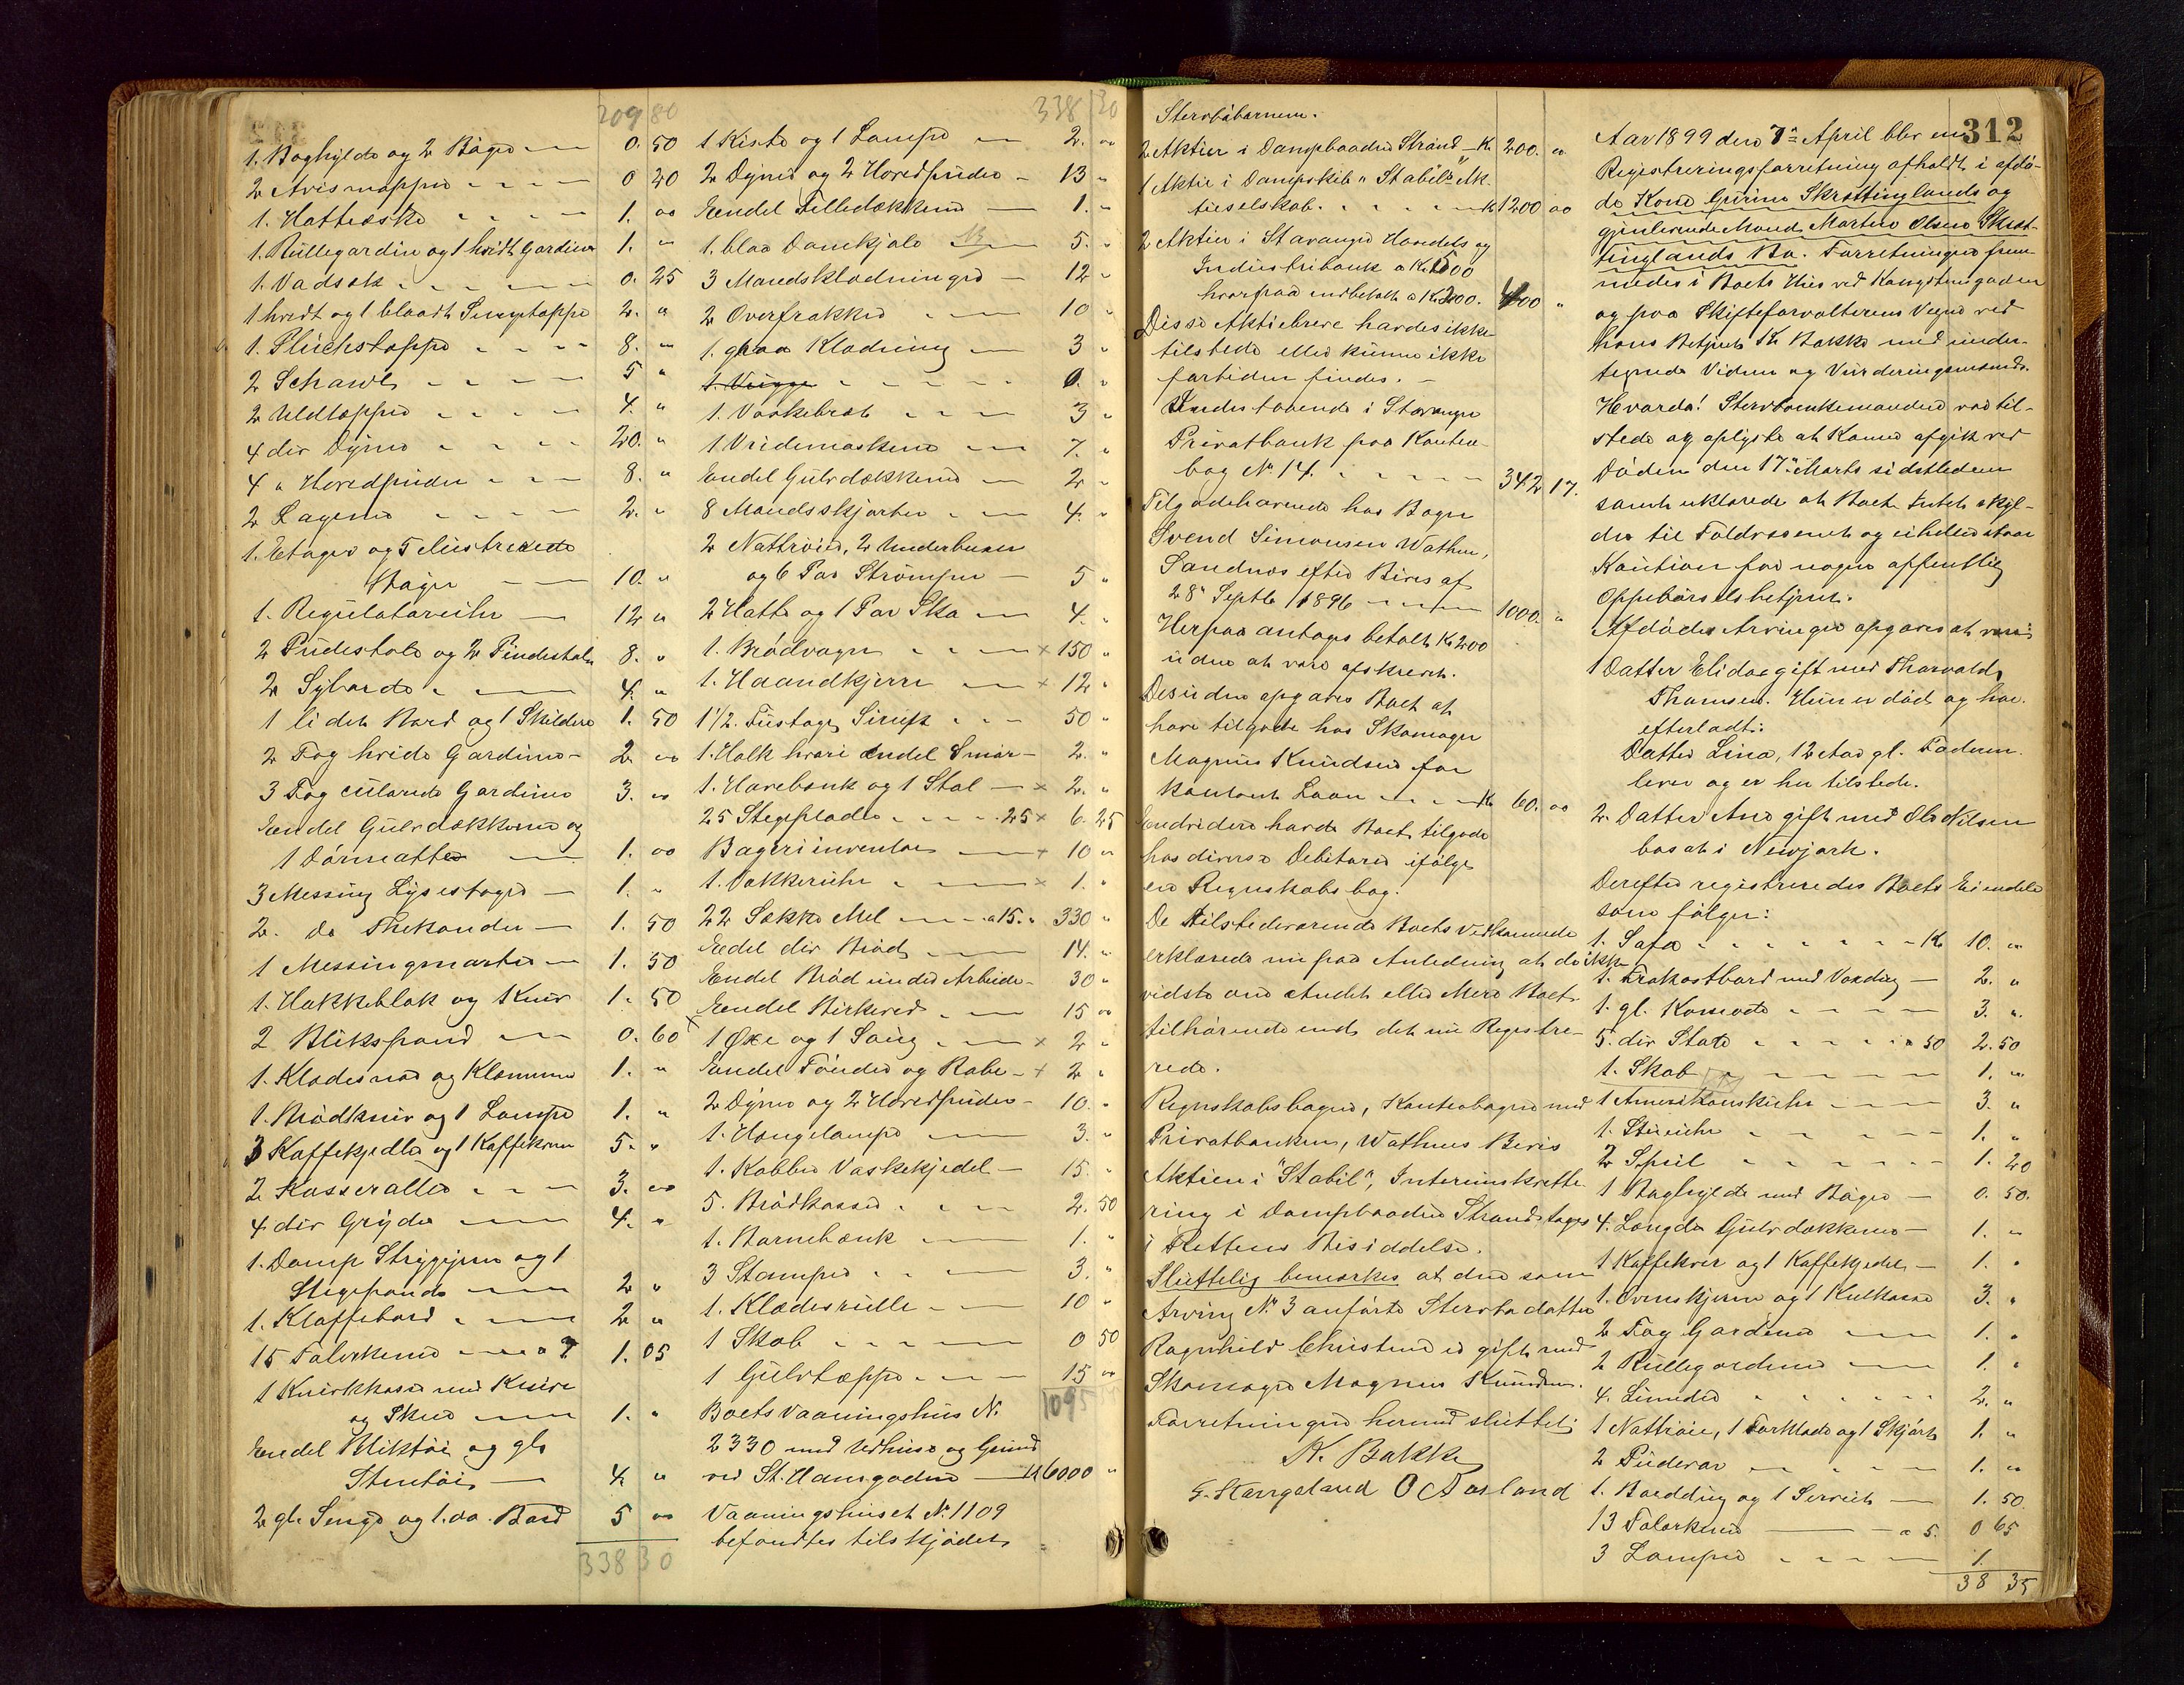 209 80
1. Boghylde og 2 Bøger 0. 50
2 Avismapper 0 20
1. Hatteæske 1. 00
1. Rullegardin og 1 hvidt Gardin 1. "
1. Vadsæk 0. 25
1 hvidt og 1 blaadt Sengetæppe 2. "
1. Plüchstæppe 8. "
2 Schawl 5 "
2 Uldtæpper 4. "
4 div Dyner 20. "
4 " Hovedpuder 8. "
2 Lagener 2. "
1. Etager og 5 Lüstrerede
Stager 10. "
1. Regulatoruhr 12 "
2 Pudestole og 2 Pindestole 8. "
2 Syborde 4. "
1 lidet Bord og 1 Skilderi 1. 50
2 Fag hvide Gardiner 2 00
3 Fag culørede Gardiner 3. 00
Endel Gulvdækkener og
1 Dørmatte 1. 00
3 Messing Lysestager 1. "
2. do Thekander 1. 50
1 Messingmorter 1. 50
1. Hakkeblok og Kniv 1. 50
2 Blikspand 0. 60
1. Klædesnor og Klemmer 1. "
1. Brødkniv og 1 Lampe 1. "
3 Kaffekjedler og 1 Kaffekværn 5. "
2 Kasseroller 3. 00
4 div Gryder 4. "
1. Damp Strygejern og 1
Stegepande 2 "
1. Klaffebord 2 "
15 Talerkener a 7 1. 05
1 Knivkasse med Knive
og Skeer 1. "
Endel Bliktøi og gl.
Stentøi 4. "
2 gl. Senge og 1. do. Bord 5 00
338 30
338 30
1 Kiste og 1 Lampe 2. 00
2 Dyner og 2 Hovedpuder 13 "
Endel Filledækkener 1. "
1. blaa Damekjole 5. "
3 Mandsklædninger 12 "
2 Overfrakker 10 "
1. graa Klædning 3 "
1. Vugge 6. "
1. Vaskebræt 3 "
1 Vridemaskine 7. "
Endel Gulvdækkener 2 "
8 Mandsskjorter 4. "
2 Nattrøier, 2 Underbuxer
og 6 Par Strømper 5 "
2 Hatte og 1 Par Sko 4. "
1. Brødvogn x 150 "
1. Haandkjerre x 12 "
1 1/2. Fustage Sirup 50 "
1. Holk hvori endel Smør 2. "
1. Høvebænk og 1 Stol x 2. "
25 Stegeplader 25 x 6. 25
Bageriinventar + 10 00
1. Vækkeruhr x 1. "
22 Sække Mel a 15. " 330 "
Endel div Brød 14. "
Endel Brød under Arbeide 30 "
Endel Birkeved 15 00
x 1 Øxe og 1 Saug x 2 "
Endel Tønder og Rabe + 2 "
2 Dyner og 2 Hovedpuder 10. "
1. Hængelampe 3. "
1. Kobber Vaskekjedel 15. "
5. Brødkasser 2. 50
1. Barnebænk 1. "
3 Stamper 3. "
1. Klædesrulle 10 "
1 Skab 0 50
1 Gulvtæppe 15 00
1095
Boets Vaaningshus N.
2330 med Udhuse og Grund
ved St. Hansgaden K 6000 "
Vaaningshuset N. 1109
befandtes tilskjødet
Stervbobarnene.
2 Aktier i Dampbaaden Strand K. 200. 00
1 Aktie i Dampskib "Stabil" Ak-
tieselskab. K 1200 00
2 Aktier i Stavanger Handels og
Industribank a K. 500
hvorpaa indbetalt a K. 200. 400 "
Disse Aktiebreve havdes ikke
tilstede eller kunne ikke
fortiden findes. —
Indestaaende i Stavanger
Privatbank paa Kontra-
bog No. 14. 342 17.
Tilgodehavende hos Bager
Svend Simonsen Wathne,
Sandnæs efter Bevis af
28' Septb 1896 1000. "
Herpaa antages betalt K. 200
uden at være afskrevet.
Desuden opgaves Boet at
have tilgode hos Skomager
Magnus Knudsen for
kontant Laan K. 60. 00
Endvidere havde Boet tilgode
hos diverse Debitorer ifølge
en Regnskabsbog.
De tilstedeværende Boets Vedkommende
erklærede nu paa Anledning at de ikke
vidste om Andet eller Mere Boet
tilhørende end det nu Registre-
rede.
Regnskabsbogen, Kontrabogen med
Privatbanken, Wathnes Bevis
Aktien i "Stabil", Interimskvitte-
ring i Dampbaaden Strand toges
i Rettens Besiddelse.
Sluttelig bemærkes at den som
Arving No 3 anførte Stervbodatter
Ragnhild Christine er gift med
Skomager Magnus Knudsen.
Forretningen hermed sluttet.
K. Bakke
G. Stangeland O A Aasland
312
Aar 1899 den 7de April blev en
Registreringsforretning afholdt i afdø-
de Kone Gurine Skrettinglands og
gjenlevende Mand Martin Olsen Skret-
tinglands Bo. Forretningen frem-
medes i Boets Hus ved Kongstensgaden
og paa Skifteforvalterens Vegne ved
hans Betjent K. Bakke med under-
tegnede Vidner og Vurderingsmænd.
Hvorda! Stervboenkemanden var til-
stede og oplyste at Konen afgik ved
Døden den 17de Marts sidstleden
samt erklærede at Boet Intet skyl-
der til Toldvæsenet og ei heller staar
Kaution for nogen offentlig
Oppebørselsbetjent.
Afdødes Arvinger opgaves at være:
1 Datter Elida gift med Thorvald
Thomsen. Hun er død og har
efterladt:
Datter Lina, 12 Aar gl. Faderen
lever og er her tilstede.
2. Datter Ane gift med Ole Nilsen
bosat i Newjork.
Derefter registreredes Boets Eiendele
som følger:
1. Sofa K. 10. 00
1. Frokostbord med Voxdug 2. "
1. gl. Komode 3. "
5. div Stole a 50 2. 50
1. Skab 1. 00
1 Amerikanskuhr 3. "
1. Stueuhr 1. "
2 Speil 1. 20
1 Boghylde med Bøger 0. 50.
4. Længder Gulvdækkener 1. "
1 Kaffekver og 1 Kaffekjedel 1. "
1. Ovnskjerm og 1 Kulkasse 3. "
2 Fag Gardiner 1. "
2 Rullegardiner 1. "
4. Linneder 2. "
1 Nattrøie, 1 Forklæde og 1 Skjørt 1. "
2 Pudevar 1. 00
1. Borddug og 1 Serviet 1. 50
13 Talerkener a 5. 0 65
3 Lamper 1.
38 35